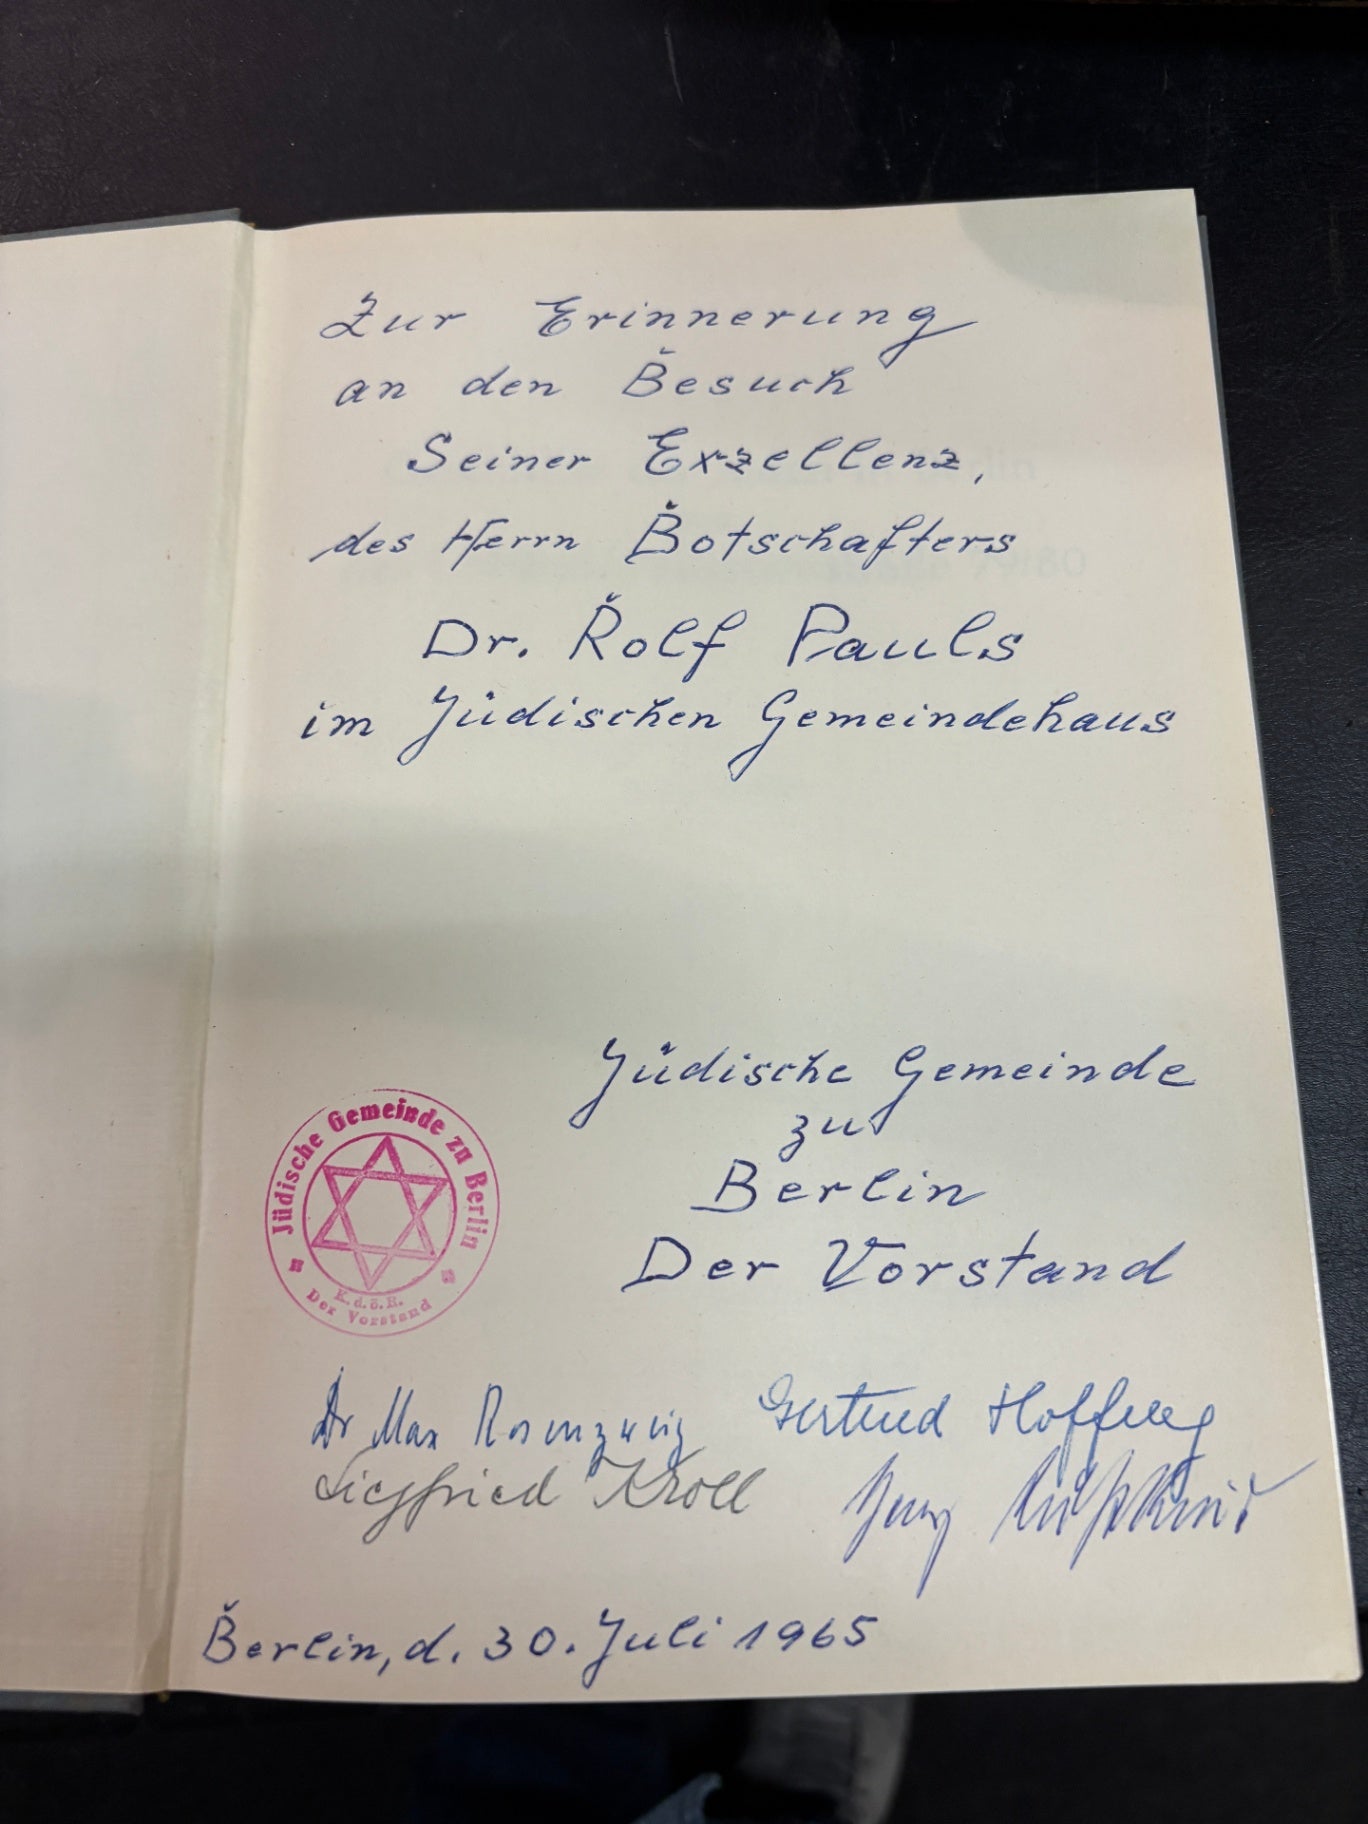 Zur Erinnerung
an den Besuch
Seiner Exzellenz,
des Herrn Botschafters
Dr. Rolf Pauls
im Jüdischen Gemeindehaus
Jüdische Gemeinde
zu
Berlin
Der Vorstand
Jüdische Gemeinde zu Berlin
K.d.ö.R.
Der Vorstand
Dr Max Rosenzweig
Gertrud
Siegfried Kroll
Berlin, d. 30. Juli 1965